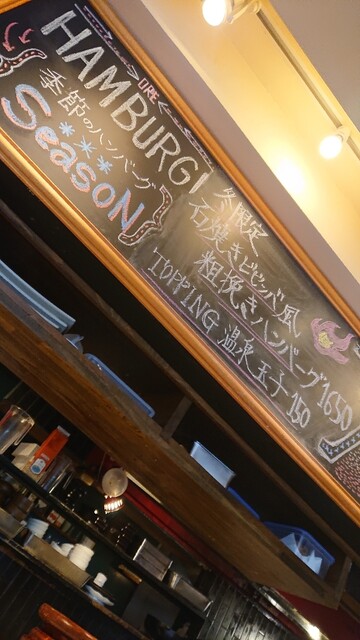 ORE
HAMBURG
季節のハンバーグ
Season
冬限定
石焼きビビンバ風
粗挽きハンバーグ 1650
TOPPING 温泉玉子 150